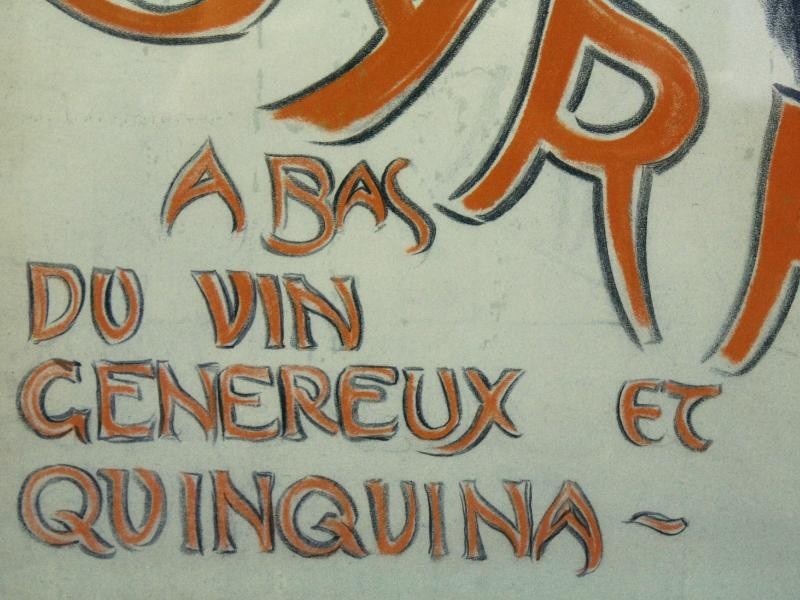 YRR
A BAS
DU VIN
GENEREUX ET
QUINQUINA ~